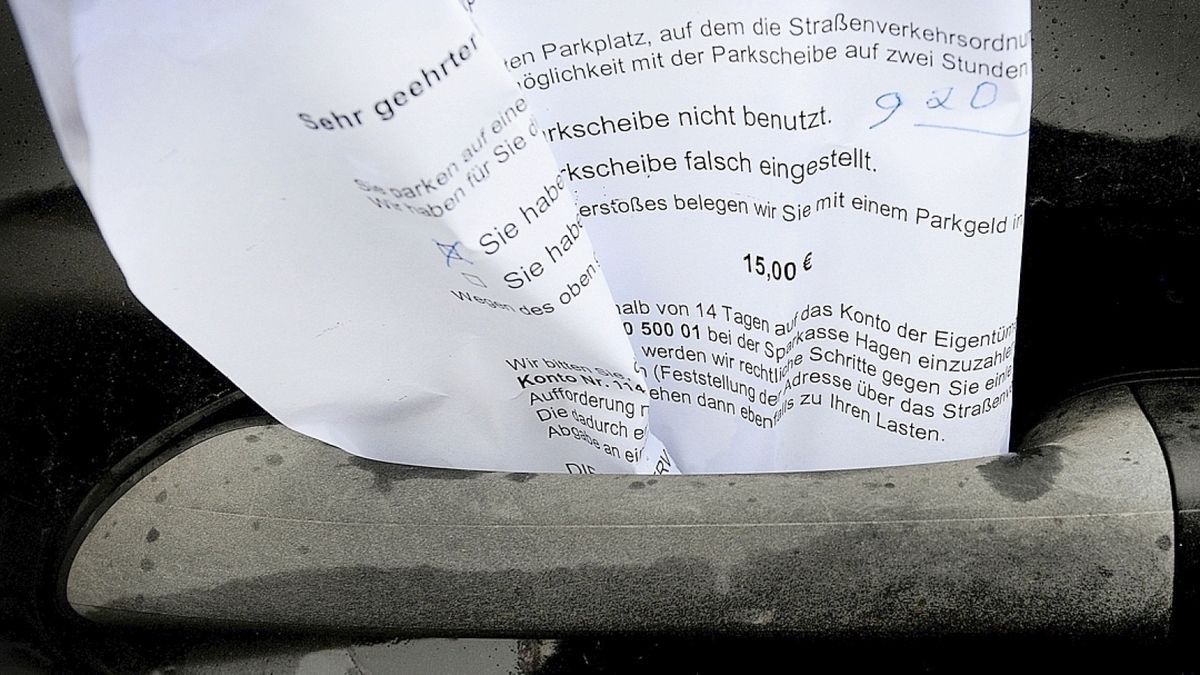 Sehr geehrter
ten Parkplatz, auf dem die Straßenverkehrsordnu
öglichkeit mit der Parkscheibe auf zwei Stunden
920
Sie parken auf eine
Wir haben für Sie d
Sie habe
arkscheibe nicht benutzt.
Sie habe
rkscheibe falsch eingestellt.
Wegen des oben g
erstoßes belegen wir Sie mit einem Parkgeld in
15,00 €
Wir bitten Sie,
halb von 14 Tagen auf das Konto der Eigentüm
Konto Nr. 114
0 500 01 bei der Sparkasse Hagen einzuzahle
Aufforderung n
werden wir rechtliche Schritte gegen Sie einle
Die dadurch e
(Feststellung der Adresse über das Straßenve
Abgabe an ein
ehen dann ebenfalls zu Ihren Lasten.
DIE
ERV